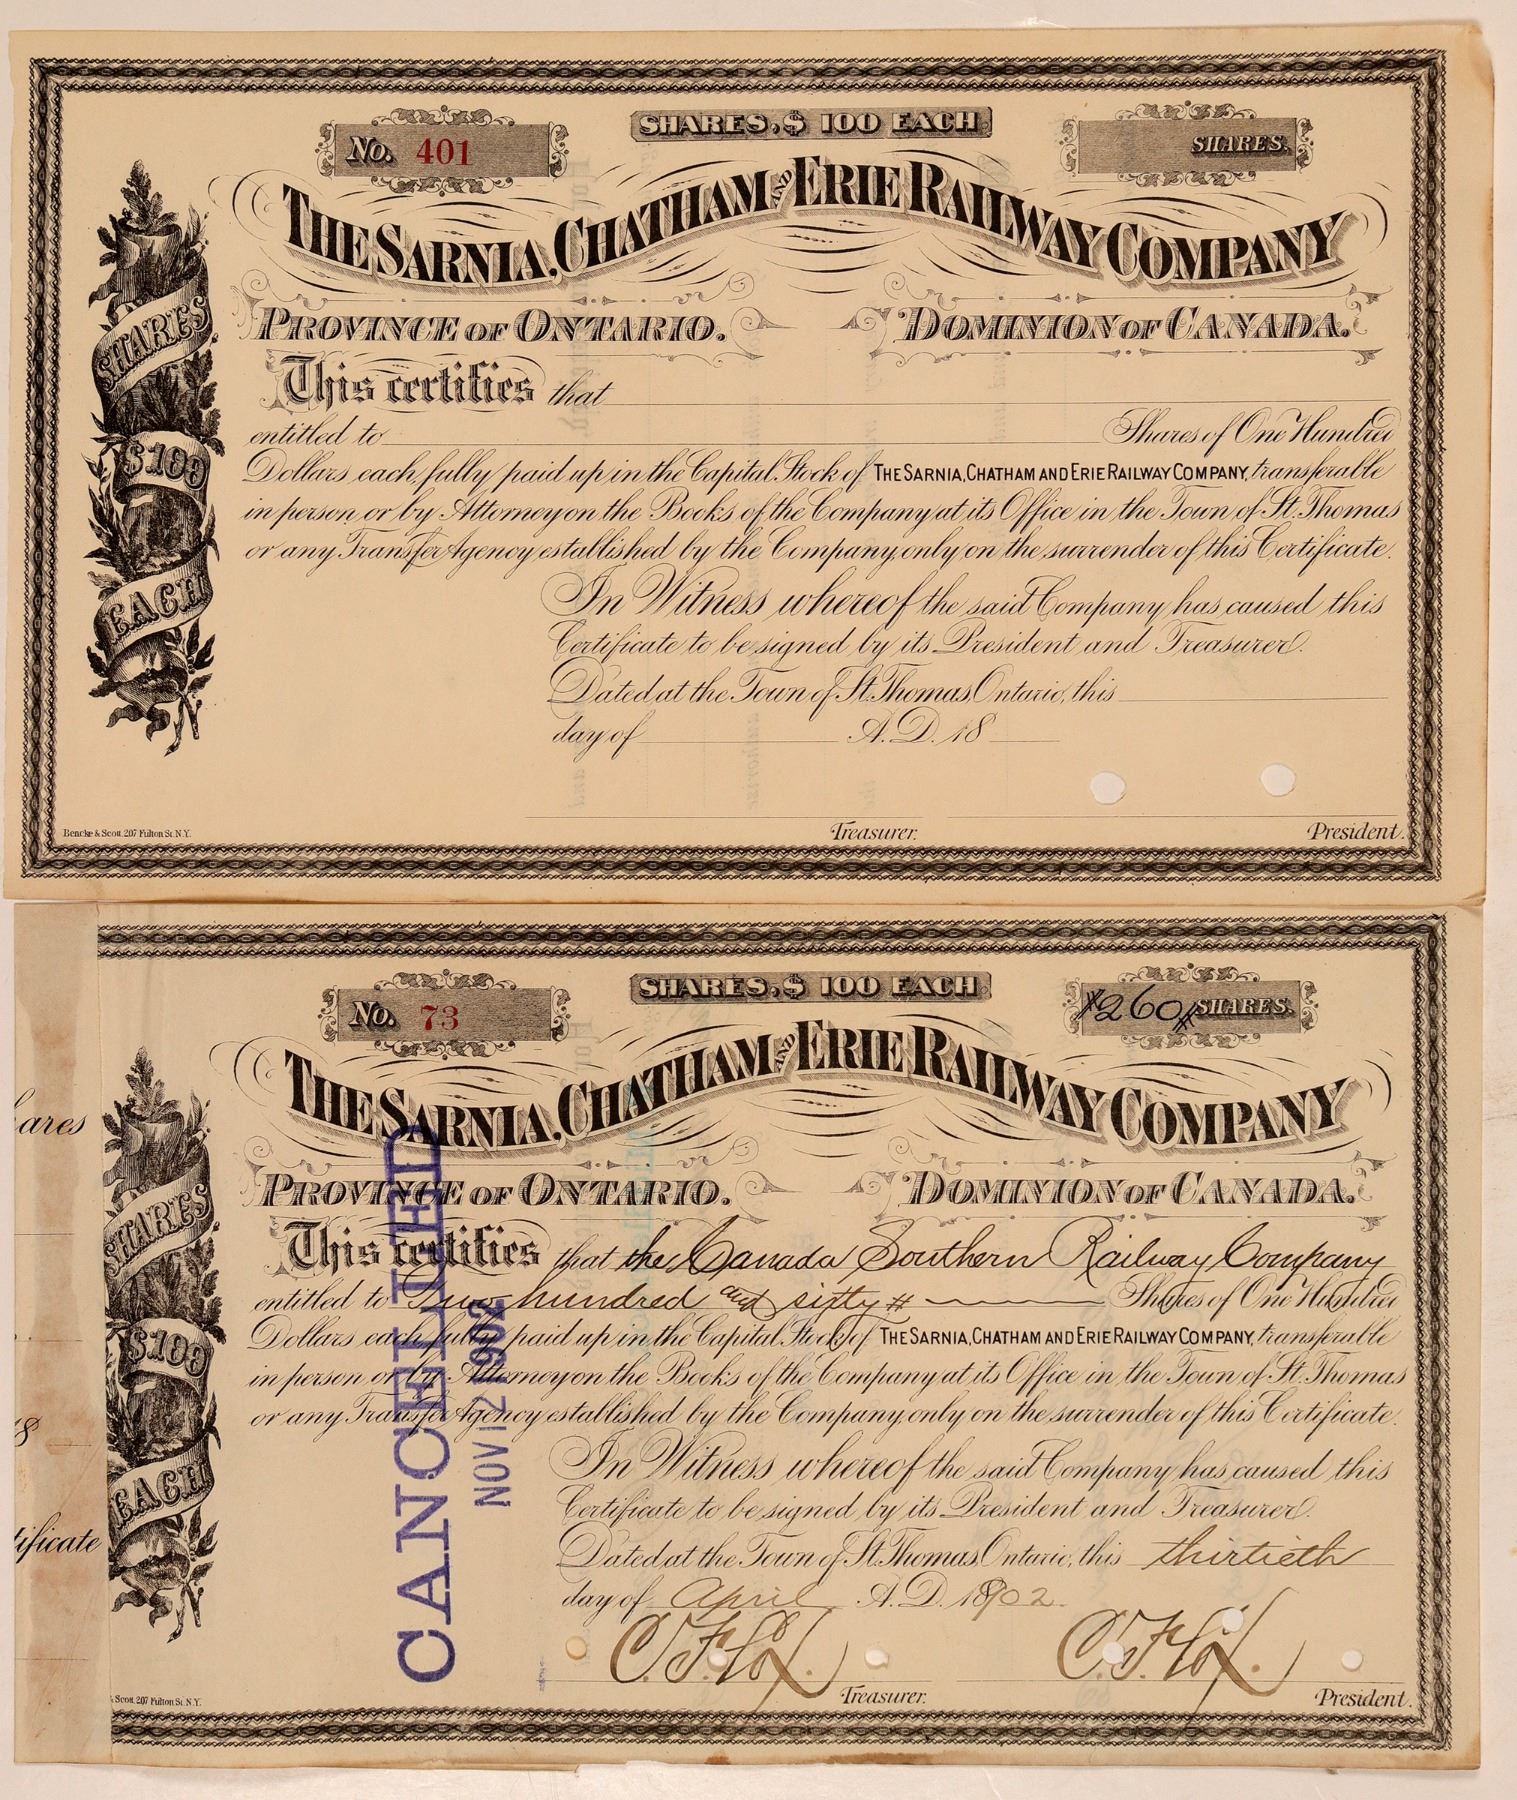 No. 401
SHARES, $100 EACH
SHARES.
THE SARNIA, CHATHAM AND ERIE RAILWAY COMPANY
PROVINCE OF ONTARIO.
DOMINION OF CANADA.
SHARES
$100
EACH
This certifies that
entitled to Shares of One Hundred
Dollars each, fully paid up in the Capital Stock of THE SARNIA, CHATHAM AND ERIE RAILWAY COMPANY, transferable
in person or by Attorney on the Books of the Company at its Office in the Town of St. Thomas
or any Transfer Agency established by the Company, only on the surrender of this Certificate.
In Witness whereof the said Company has caused this
Certificate to be signed by its President and Treasurer.
Dated at the Town of St. Thomas, Ontario, this
day of A.D. 18
Bencke & Scott, 207 Fulton St. N.Y.
Treasurer.
President.
No. 73
SHARES, $100 EACH
#260# SHARES.
THE SARNIA, CHATHAM AND ERIE RAILWAY COMPANY
PROVINCE OF ONTARIO.
DOMINION OF CANADA.
ares
18
tificate
SHARES
$100
EACH
This certifies that the Canada Southern Railway Company
entitled to Two hundred and sixty # Shares of One Hundred
Dollars each, fully paid up in the Capital Stock of THE SARNIA, CHATHAM AND ERIE RAILWAY COMPANY, transferable
in person or by Attorney on the Books of the Company at its Office in the Town of St. Thomas
or any Transfer Agency established by the Company, only on the surrender of this Certificate.
In Witness whereof the said Company has caused this
Certificate to be signed by its President and Treasurer.
Dated at the Town of St. Thomas, Ontario, this thirtieth
day of April A.D. 1902
CANCELLED
NOV 12 1902
C. F. Cox.
C. F. Cox.
Scott, 207 Fulton St. N.Y.
Treasurer.
President.